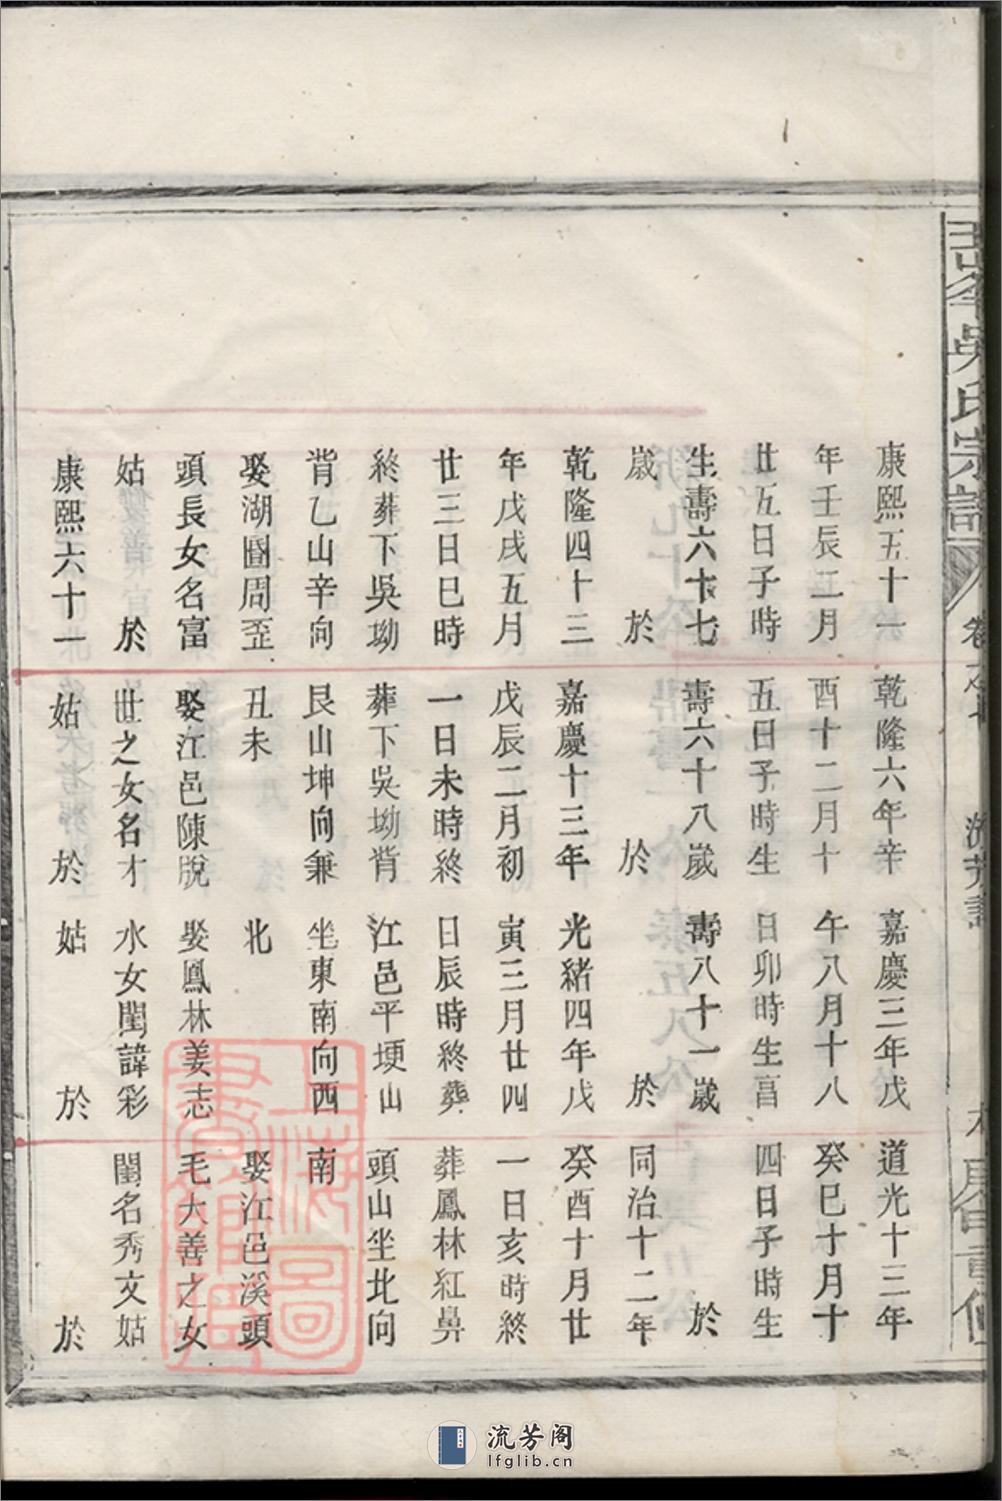 吳氏宗譜
卷之
重修
康熙五十一
年壬辰二月
廿五日子時
生壽六十七
歲 於
乾隆四十三
年戊戌五月
廿三日巳時
終葬下吳坳
背乙山辛向
娶湖周歪
頭長女名富
姑 於
康熙六十一
乾隆六年辛
酉十二月十
五日子時生
壽六十八歲
於
嘉慶十三年
戊辰二月初
一日未時終
葬下吳坳背
艮山坤向兼
丑未
娶江邑陳脫
世之女名才
姑 於
嘉慶三年戊
午八月十八
日卯時生亯
壽八十一歲
於
光緒四年戊
寅三月廿四
日辰時終葬
江邑平埂山
坐東南向西
北
娶鳳林姜志
水女閨諱彩
姑 於
道光十三年
癸巳十月十
四日子時生
於
同治十二年
癸酉十月廿
一日亥時終
葬鳳林紅鼻
頭山坐北向
南
娶江邑溪頭
毛大善之女
閨名秀文姑
於
上海圖書館藏
流芳阁
lfglib.cn